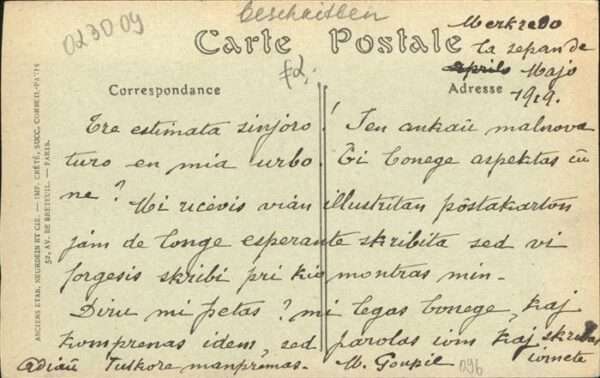 beschreiben
023009
Carte Postale
Merkredo
la sepan de
Aprilo Majo
1919.
£2,-
Correspondance
Adresse
Tre estimata sinjoro! Jen ankaŭ malnova
turo en mia urbo. Ĝi bonege aspektas ĉu
ne? Mi ricevis vian illustritan pôstakarton
jam de longe esperante skribita sed vi
forgesis skribi pri kio montras min.
Diru mi petas? mi legas bonege, kaj
komprenas idem, sed parolas iom kaj skribas
iomete
Adiaŭ Tutkore manpremas. M. Goupil
096
ANCIENS ETAB. NEURDEIN ET CIE. — IMP. CRÉTÉ, SUCC. CORBEIL-PARIS
52, AV. DE BRETEUIL. — PARIS.